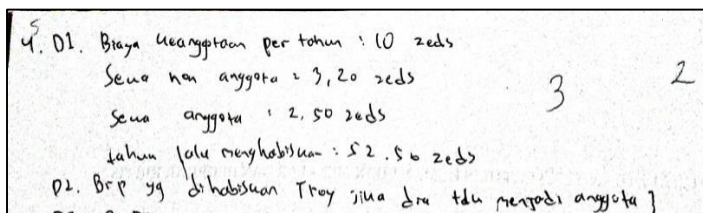 5
4. D1. Biaya keanggotaan per tahun : 10 zeds
Sewa non anggota : 3,20 zeds
3 2
Sewa anggota : 2.50 zeds
tahun lalu menghabiskan : 52.50 zeds
D2. Brp yg dihabiskan Troy jika dia tdk menjadi anggota ?